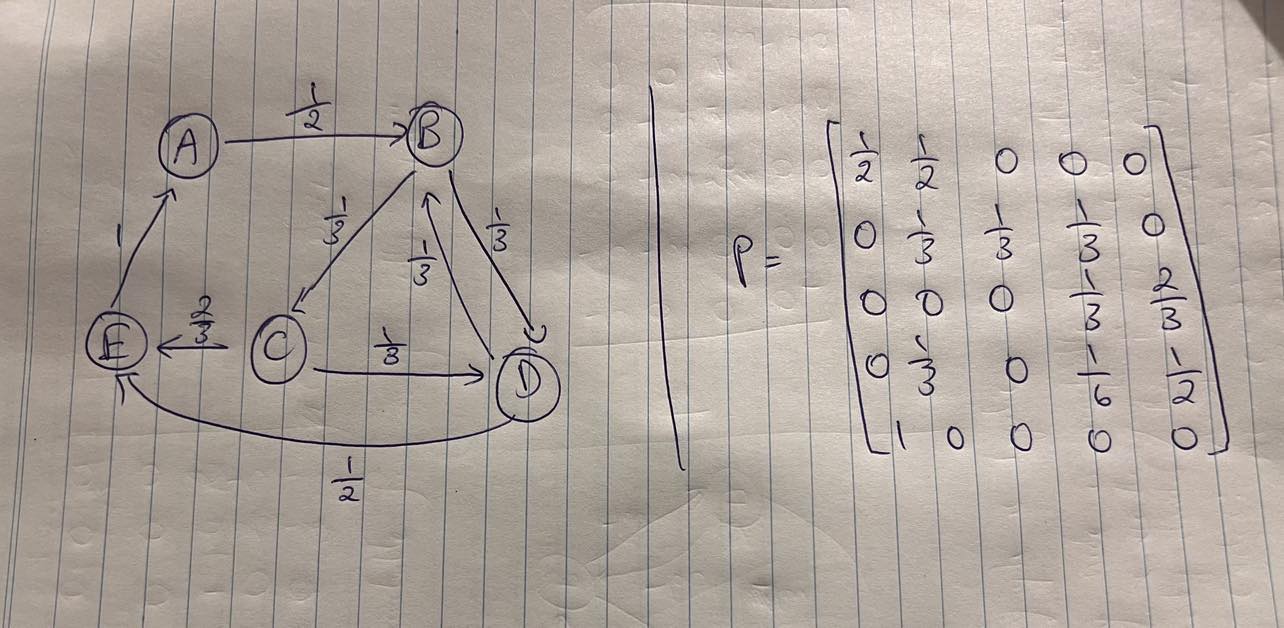 1/2
A B
1 1/3 1/3 1/3
2/3 1/3
E C D
1/2
P =
1/2 1/2 0 0 0
0 1/3 1/3 1/3 0
0 0 0 1/3 2/3
0 1/3 0 1/6 1/2
1 0 0 0 0